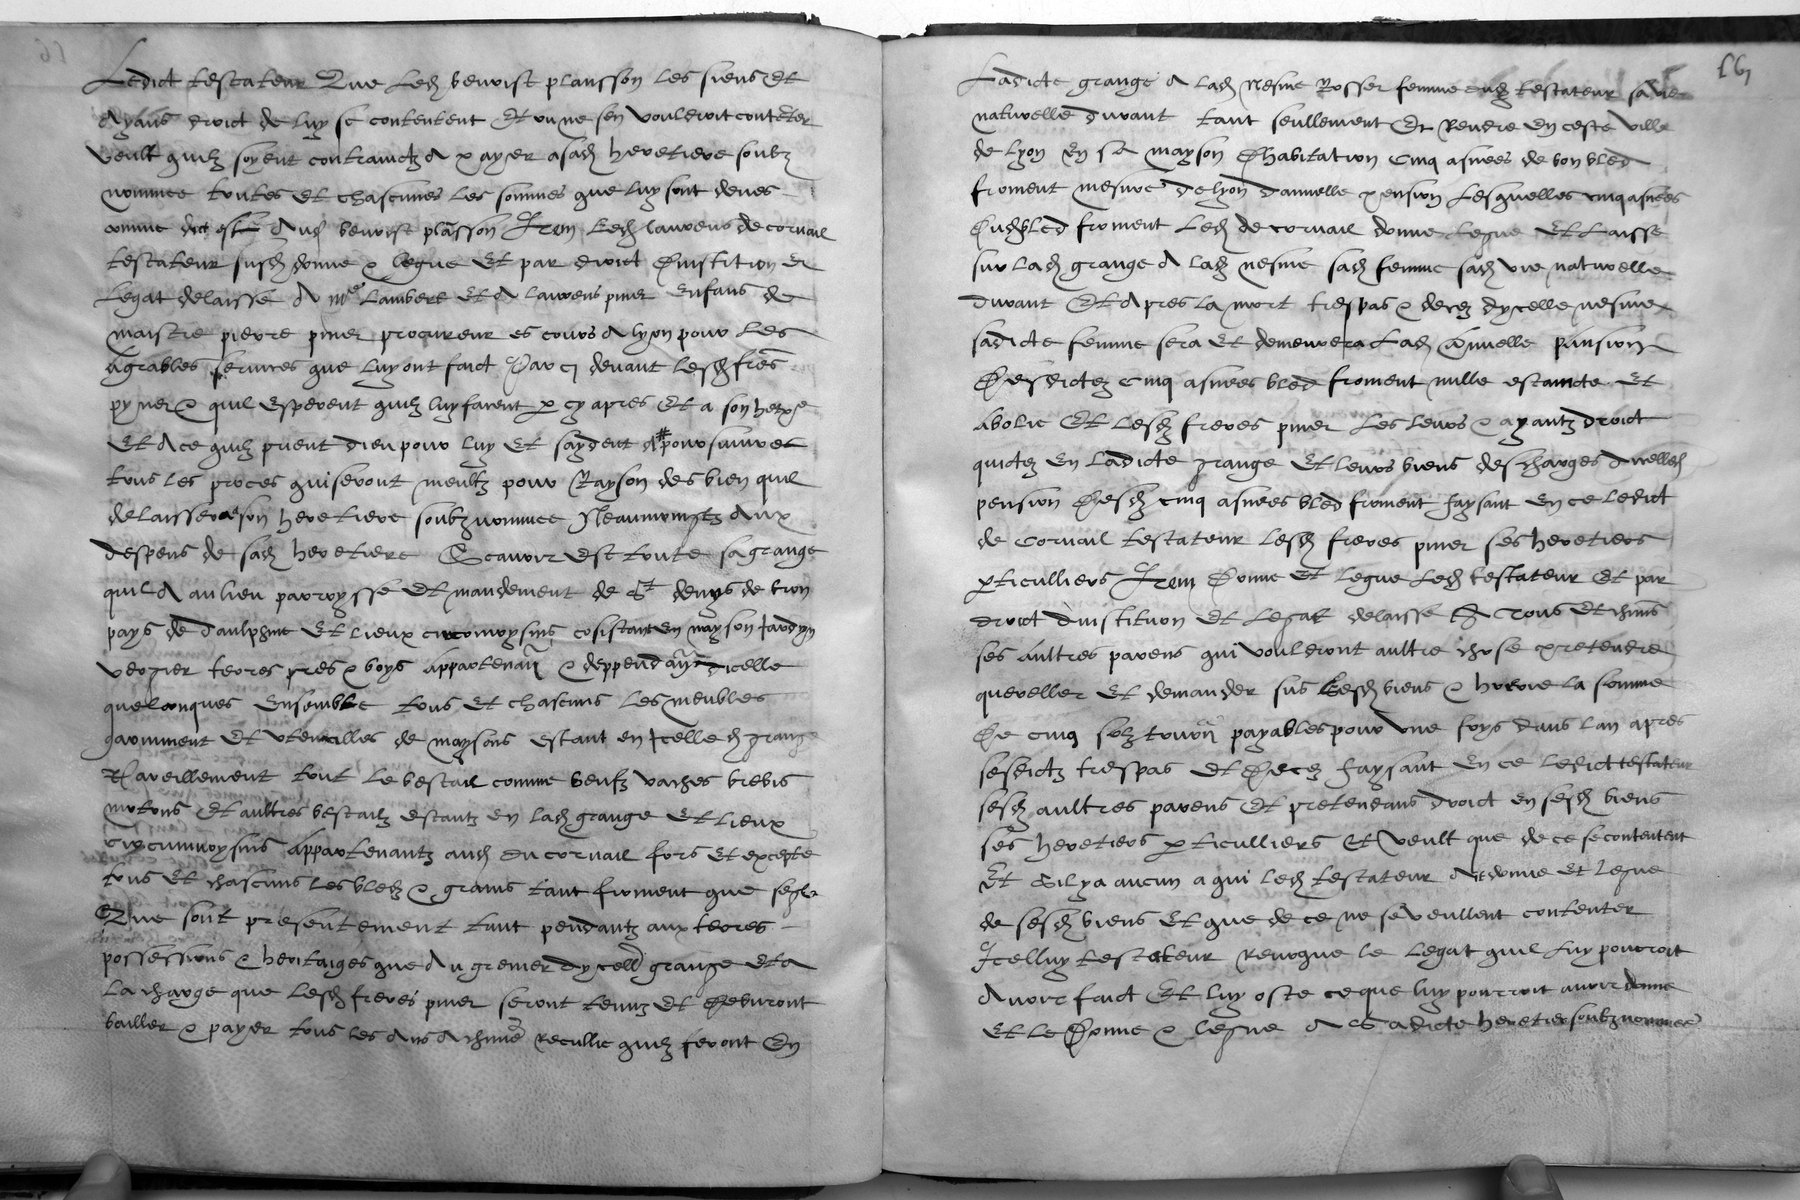 Ledict testateur Que Led benoist plansson les siens Et
Ayans droict de luy se contentent Et ou ne sen vouldroit contēter
veult quilz soyent contrainctz A payer asad heretiere soubz
nommee toutes et chascunes les sommes que luy sont deues
comme dict est Aud benoist plāsson Item Led laurens de corvail
testateur susd donne & legue Et par droict Dinstitution et
Legat delaisse A me Lambert et A laurens piner enfans de
maistre pierre piner procureur es cours A lyon pour les
Agrables services que luy ont faict Par cj devant Lesd freres
pyner & quil esperent quilz luy facent p cy apres Et a son
Et Ace quilz prient dieu pour luy Et saydent # pour
tous les proces qui seront meubz pour Rayson des bien quil
delaissera son heretiere soubz nommee Neaumoingtz Aux
despens de sad heretiere Scavoir est toute sa grange
quil A au lieu parroysse et mandement de St denys de bron
pays de daulphine et lieux circonvoysins cosistant en mayson Jardyn
vergier terres pres & boys appartenan & deppendan dicelle
quelconques ensemble tous et chascuns les meubles
garniment et utencilles de maysons estant en Icelle d grange
Pareillement tout le bestail comme beufz vaches brebis
motons et aultres bestailz estantz en lad grange et lieux
circumvoysins appartenantz aud du corvail fors et excepte
tous et chascuns les bledz & grains tant froment que segle
Que sont presentement tant pendantz aux terres
possessions & heritaiges que Au grenier dycelle grange et a
La charge que Lesd freres piner seront tenuz et Debvront
bailler & payer tous les Ans A chune recullie quilz feront En
Ladicte grange A lad Nesme Rosser femme dud testateur sa vie
naturelle durant tant seullement Et Rendre en ceste ville
de lyon en sa mayson Dhabitation cinq asnees de bon bled
froment mesure de lyon dannuelle pension Lesquelles cinq asnees
Dud bled froment Led de corvail donne legue et laisse
sur lad grange A lad nesme sad femme sad vie naturelle
durant Et Apres la mort trespas & decez dycelle nesme
sadicte femme sera et demeurera Lad Annuelle pansion
Desdictez cinq asnees bled froment nulle estaincte et
abolie Et lesd freres piner les leurs & ayantz droict
quictez en ladicte grange et leurs biens descharges dicelled
pension Desd cinq asnees bled froment faysant en ce ledict
de Corvail testateur lesd freres piner ses heretiers
pticulliers Item Donne et legue led testateur et par
droict dinstitution et legat delaisse A tous et chuns
ses aultres parens qui vouldront aultre chose pretendre
quereller et demander sus sesd biens & hoerie la somme
De cinq solz tourn payables pour une foys dans lan apres
sesdictz trespas et Decez faysant en ce ledict testateur
sesd aultres parens et pretendans droict en sesd biens
ses heretiers pticulliers et veult que de ce se contentent
Et Sil ya aucun a qui led testateur Aie donne et legue
de sesd biens et que de ce ne se veullent contenter
Icelluy testateur revoque le legat quil luy pourroit
Avoir faict Et luy oste ce que luy pourroit avoir donne
Et le Donne & legue A sadicte heretiere soubz nommee